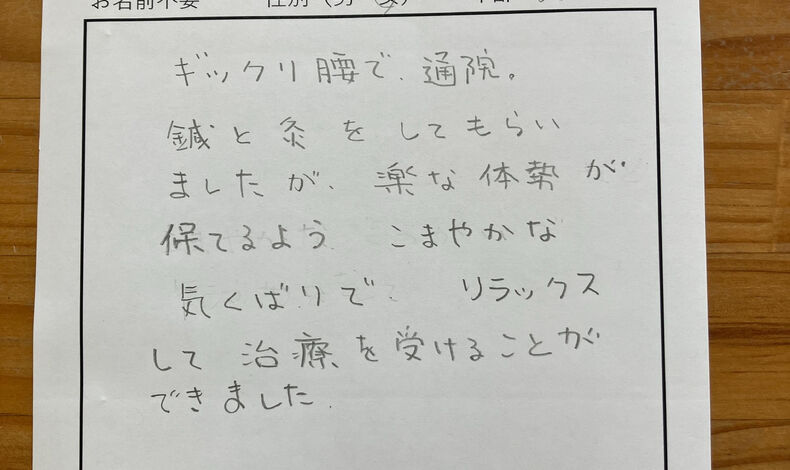 お名前不要 性別（男・女）
ギックリ腰で、通院。
鍼と灸をしてもらい
ましたが、楽な体勢が
保てるよう こまやかな
気くばりで、リラックス
して治療を受けることが
できました。